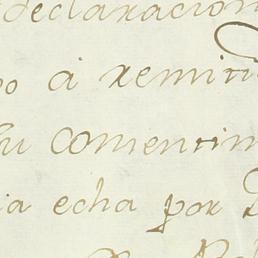 declaracion
á remitir
su comentim
echa por